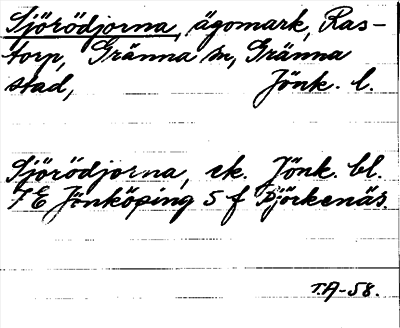 Sjörödjorna, ägomark, Ras-
torp, Gränna sn, Gränna
stad, Jönk. l.
Sjörödjorna, ek. Jönk. bl.
7 E Jönköping 5 f Björkenäs.
T.A-58.